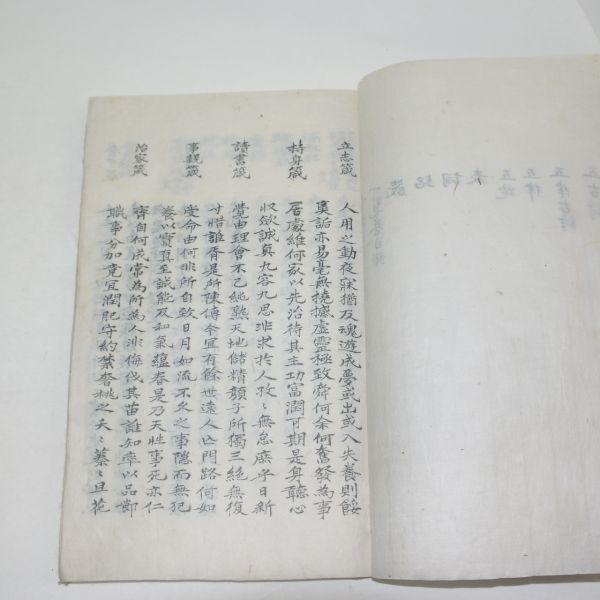 立志箴
人用之動夜寐猶及魂遊成夢或出或入失養則餒
莫詬亦易毫無撓攄虛靈極致舜何余何奮發為事
持身箴
層處維何家以先治待其主功富潤可期是身聽心
收斂誠真九容九思非求於人孜々無怠庶乎日新
讀書箴
覺由理會不已純熟天地儲精顏子所獨三絕無復
寸惜誰肩是所陳傳今宜有餘世遠人亡門路何如
事親箴
受命由何非所自致日月如流不久之事隱而無犯
養以實真至誠能及和氣蘊春是乃天性事死亦仁
治家箴
齊自何成常為所為人非侮伐其苗誰知率以品鄙
職事分加竟宜潤肥守約禁奢桃之夭々蓁々且苑
五古詩
五律古詩
五律
五絕
夫
詞
銘
箴